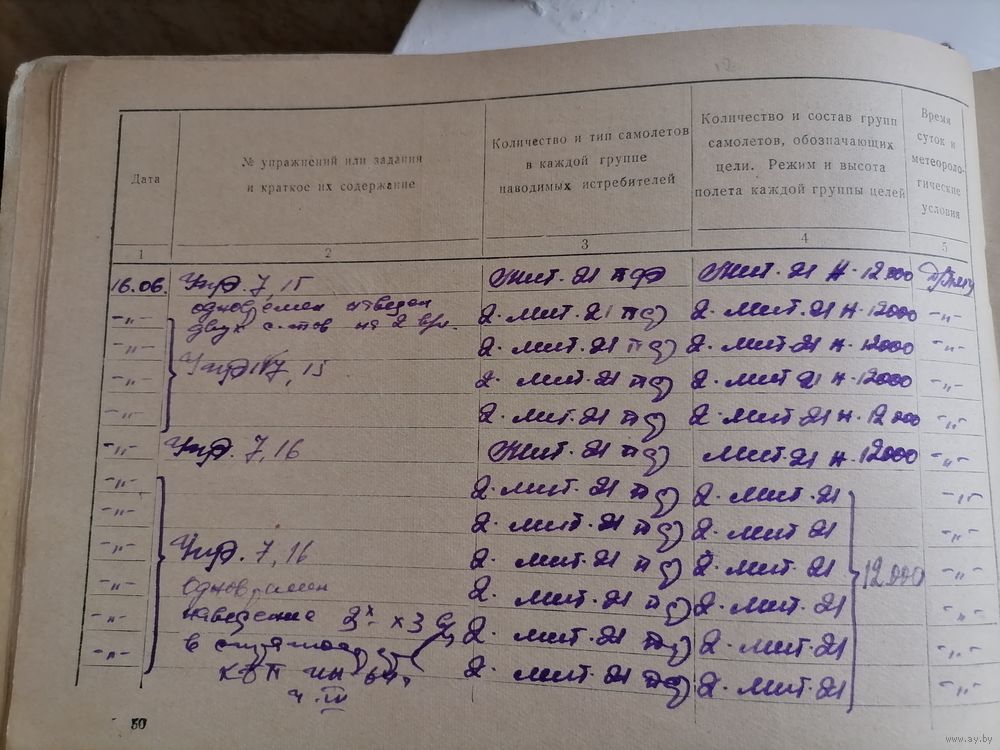 Дата
№ упражнений или задания
и краткое их содержание
Количество и тип самолетов
в каждой группе
наводимых истребителей
Количество и состав групп
самолетов, обозначающих
цели. Режим и высота
полета каждой группы целей
Время
суток и
метеороло-
гические
условия
1
2
3
4
5
16.06. Упр. 7, 15 миг. 21 миг. 21 Н. 12000
-„- 2. миг. 21 2. миг. 21 Н. 12000 -„-
двух на 2
-„- 2. миг. 21 2. миг. 21 Н. 12000 -„-
-„- Упр. 7, 15 2. миг. 21 2. миг 21 Н. 12000 -„-
-„- 2. миг. 21 2. миг 21 Н. 12000 -„-
-„- Упр. 7, 16 миг. 21 миг. 21 Н. 12000 -„-
-„- 2. миг. 21 2. миг. 21 -„-
-„- 2. миг. 21 2. миг 21 -„-
-„- Упр. 7, 16 2. миг. 21 2. миг. 21 12000 -„-
-„- 2. миг. 21 2. миг. 21 -„-
-„- наведение 2. миг. 21 2. миг. 21 -„-
-„- в 2. миг. 21 2. миг. 21 -„-
50
www.ay.by